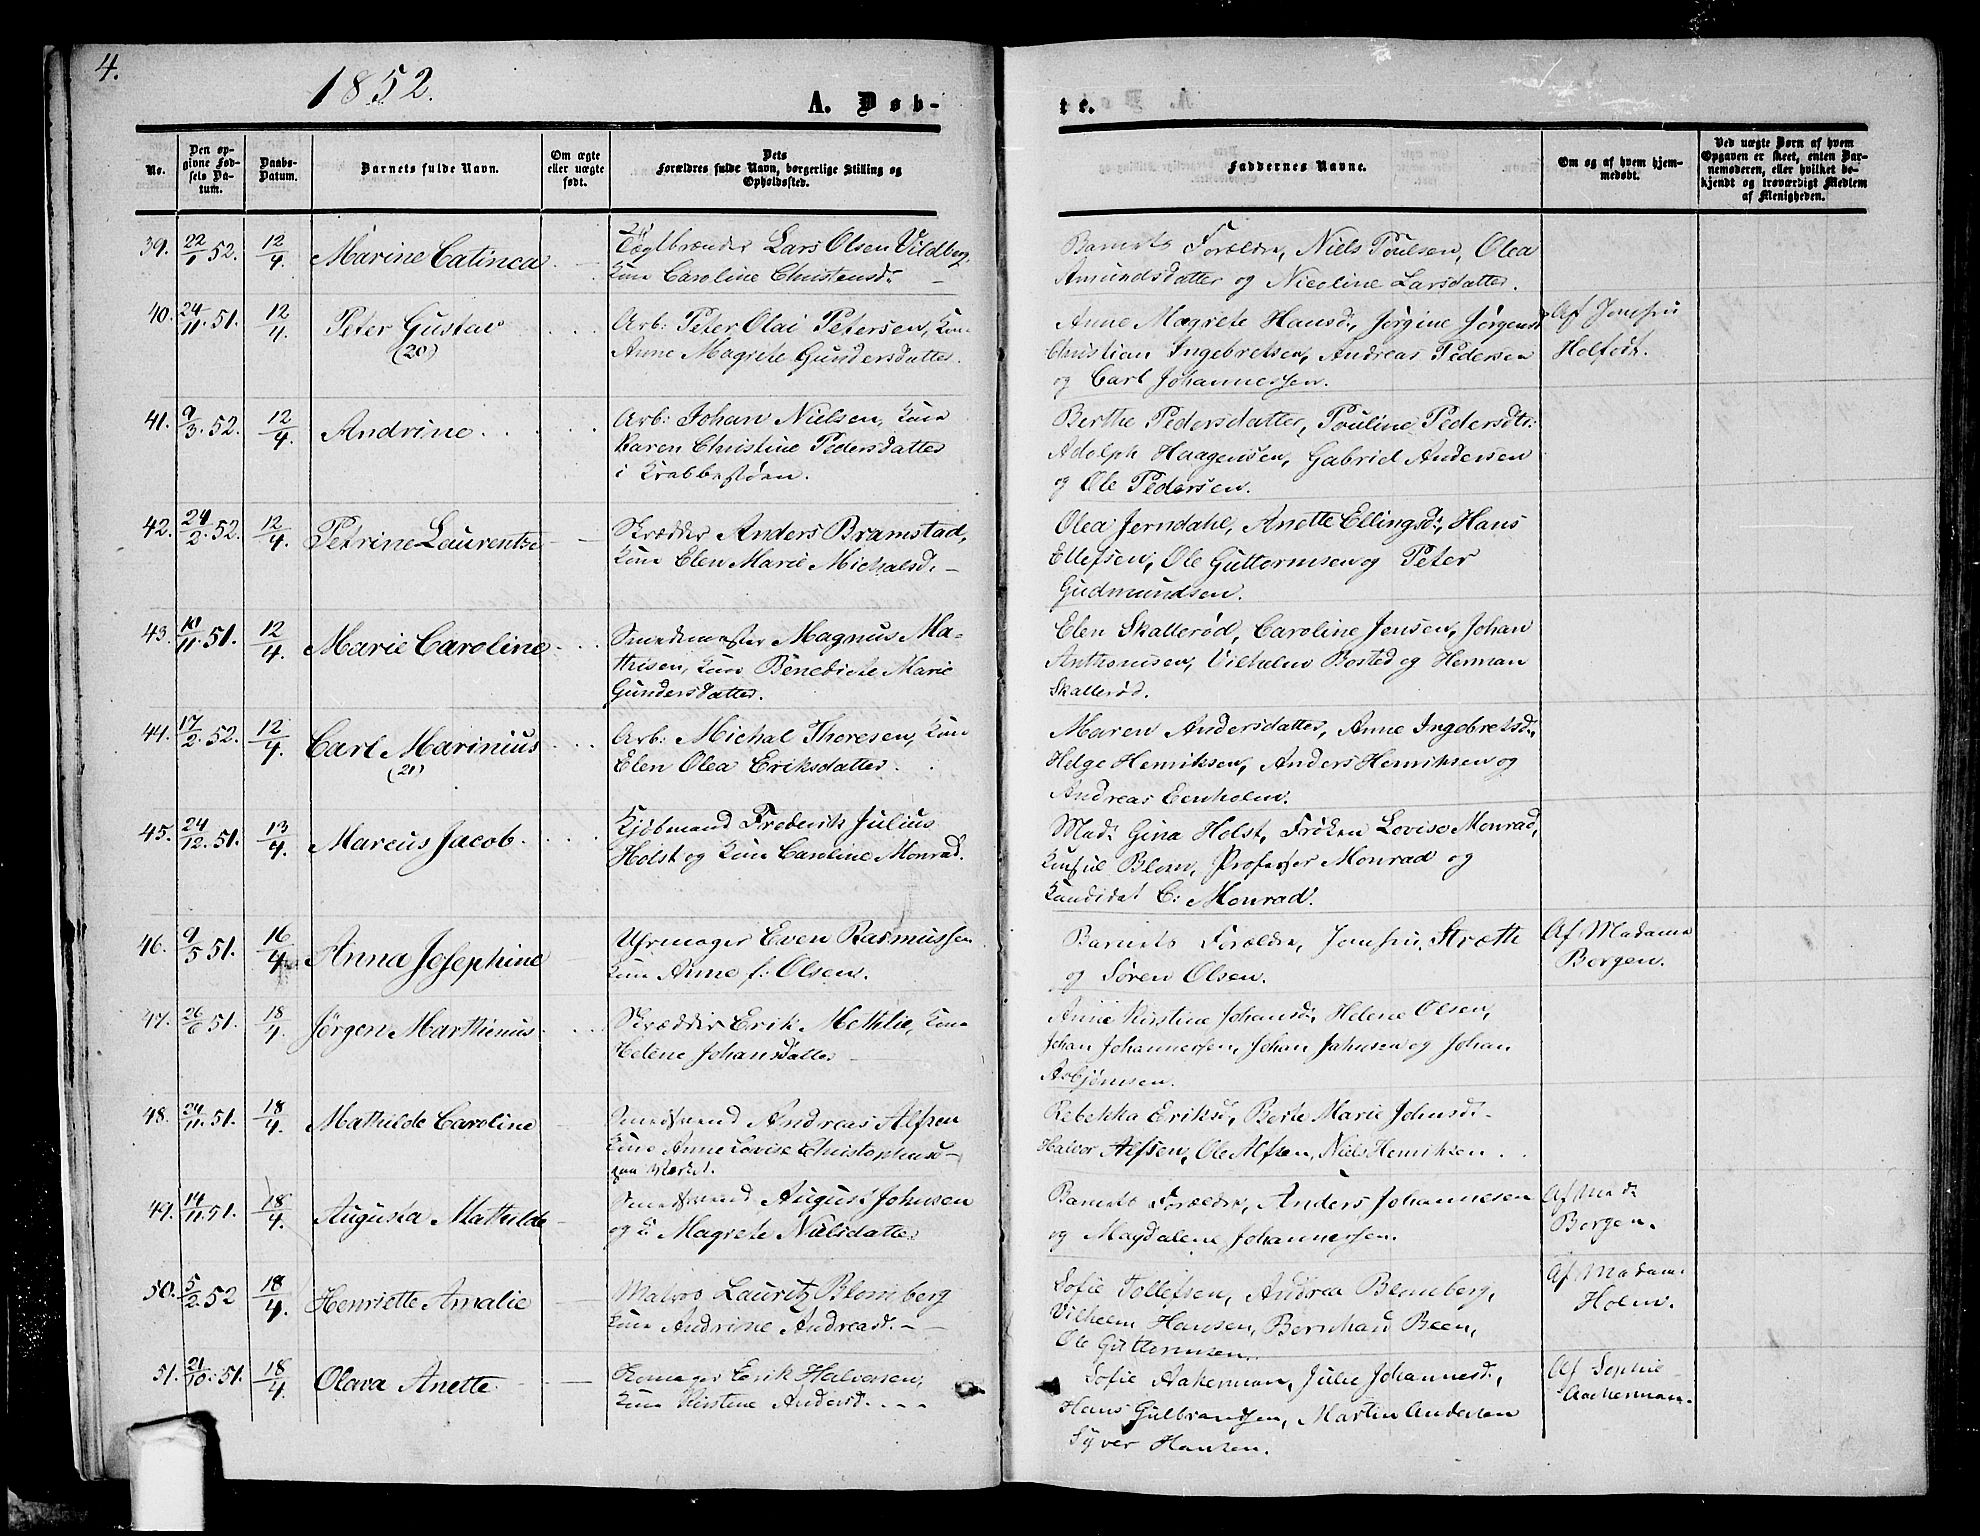 4.
1852.
A. Døb-
te.
No.
Den op-
givne Fød-
sels Da-
tum.
Daabs-
Datum.
Barnets fulde Navn.
Om ægte
eller uægte
født.
Dets
Forældres fulde Navn, borgerlige Stilling og
Opholdssted.
Faddernes Navne.
Om og af hvem hjem-
medøbt.
Ved uægte Børn af hvem
Opgaven er skeet, enten Bar-
nemoderen, eller hvilket be-
kjendt og troværdigt Medlem
af Menigheden.
39. 22/1 52. 12/4. Marine Catinca
Teglbrænder Lars Olsen Vildberg,
Kone Caroline Christensd.
Barnets Forældre, Niels Poulsen, Olea
Amundsdatter og Nicoline Larsdatter.
40. 24/11. 51. 12/4. Peter Gustav
(20)
Arb: Peter Olai Petersen, Kone
Anne Magrete Gundersdatter.
Anne Magrete Hansd:, Jørgine Jørgensd
Christian Ingebretsen, Andreas Pedersen
og Carl Johannessen.
Af Jomfru
Holfodt.
41. 9/3. 52. 12/4. Andrine
Arb: Johan Nielsen, Kone
Karen Christine Pedersdatter
i Krabbestøen.
Berthe Pedersdatter, Pouline Pedersdtr:
Adolph Haagensen, Gabriel Andersen
og Ole Pedersen.
42. 24/2. 52. 12/4. Petrine Laurentze
Skrædder Anders Bramstad,
Kone Elen Marie Michalsd.
Olea Jerndahl, Anette Ellingsd:, Hans
Ellefsen, Ole Guttormsen og Peter
Gudmundsen.
43. 10/11. 51. 12/4. Marie Caroline
Smedemester Magnus Ma-
thisen, Kone Benedicte Marie
Gundersdatter.
Elen Skallerød, Caroline Jensen, Johan
Anthonisen, Vilhelm Bosted og Herman
Skallerød.
44. 17/2. 52. 12/4. Carl Marinius
(21)
Arb: Michal Thoresen, Kone
Elen Olea Eriksdatter.
Maren Andersdatter, Anne Ingebretsd.,
Helge Henriksen, Anders Henriksen og
Andreas Eenholm.
45. 24/12. 51. 13/4. Marcus Jacob.
Kjøbmand Frederik Julius
Holst og Kone Caroline Monrad.
Mad: Gina Holst, Frøken Lovise Monrad,
Konsul Blom, Professor Monrad og
Kandidat C: Monrad.
46. 9/5 51. 16/4 Anna Josephine
Uhrmager Even Rasmussen
Kone Anne f. Olsen.
Barnets Forældre, Jomfru Stræthe
og Søren Olsen.
Af Madame
Borgen.
47. 26/6 51. 18/4. Jørgen Marthinius
Skrædder Erik Methlie, Kone
Helene Johansdatter
Anne Kirstine Johansd:, Helene Olsen,
Johan Johannessen, Johan Jahnsen og Johan
Asbjørnsen.
48. 24/11. 51. 18/4. Mathilde Caroline
Smedsvend Andreas Alfsen
Kone Anne Lovise Christophersd
paa Værket.
Rebekka Eriksd, Berte Marie Johnsd:
Halvor Alfsen, Ole Alfsen, Niels Henriksen.
49. 14/11. 51. 18/4. Augusta Mathilde
Smedsvend August Johnsen
og K: Magrete Nielsdatter
Barnets Forældre, Anders Johannesen
og Magdalene Johannessen.
Af Mad:
Borgen.
50. 5/2. 52 18/4. Henriette Amalie
Matros Lauritz Blomberg
Kone Andrine Andreasd.
Sofie Tollefsen, Andrea Benneberg,
Vilhelm Hansen, Bernhad Been,
Ole Guttormsen.
Af Madam
Holm.
51. 21/10. 51. 18/4. Olava Anette
Skomager Erik Halvorsen,
Kone Kirstine Andersd.
Sofie Aakerman, Julie Johannesd.,
Hans Gulbrandsen, Martin Andersen
Syver Hansen.
Af Sophie
Aackermann.